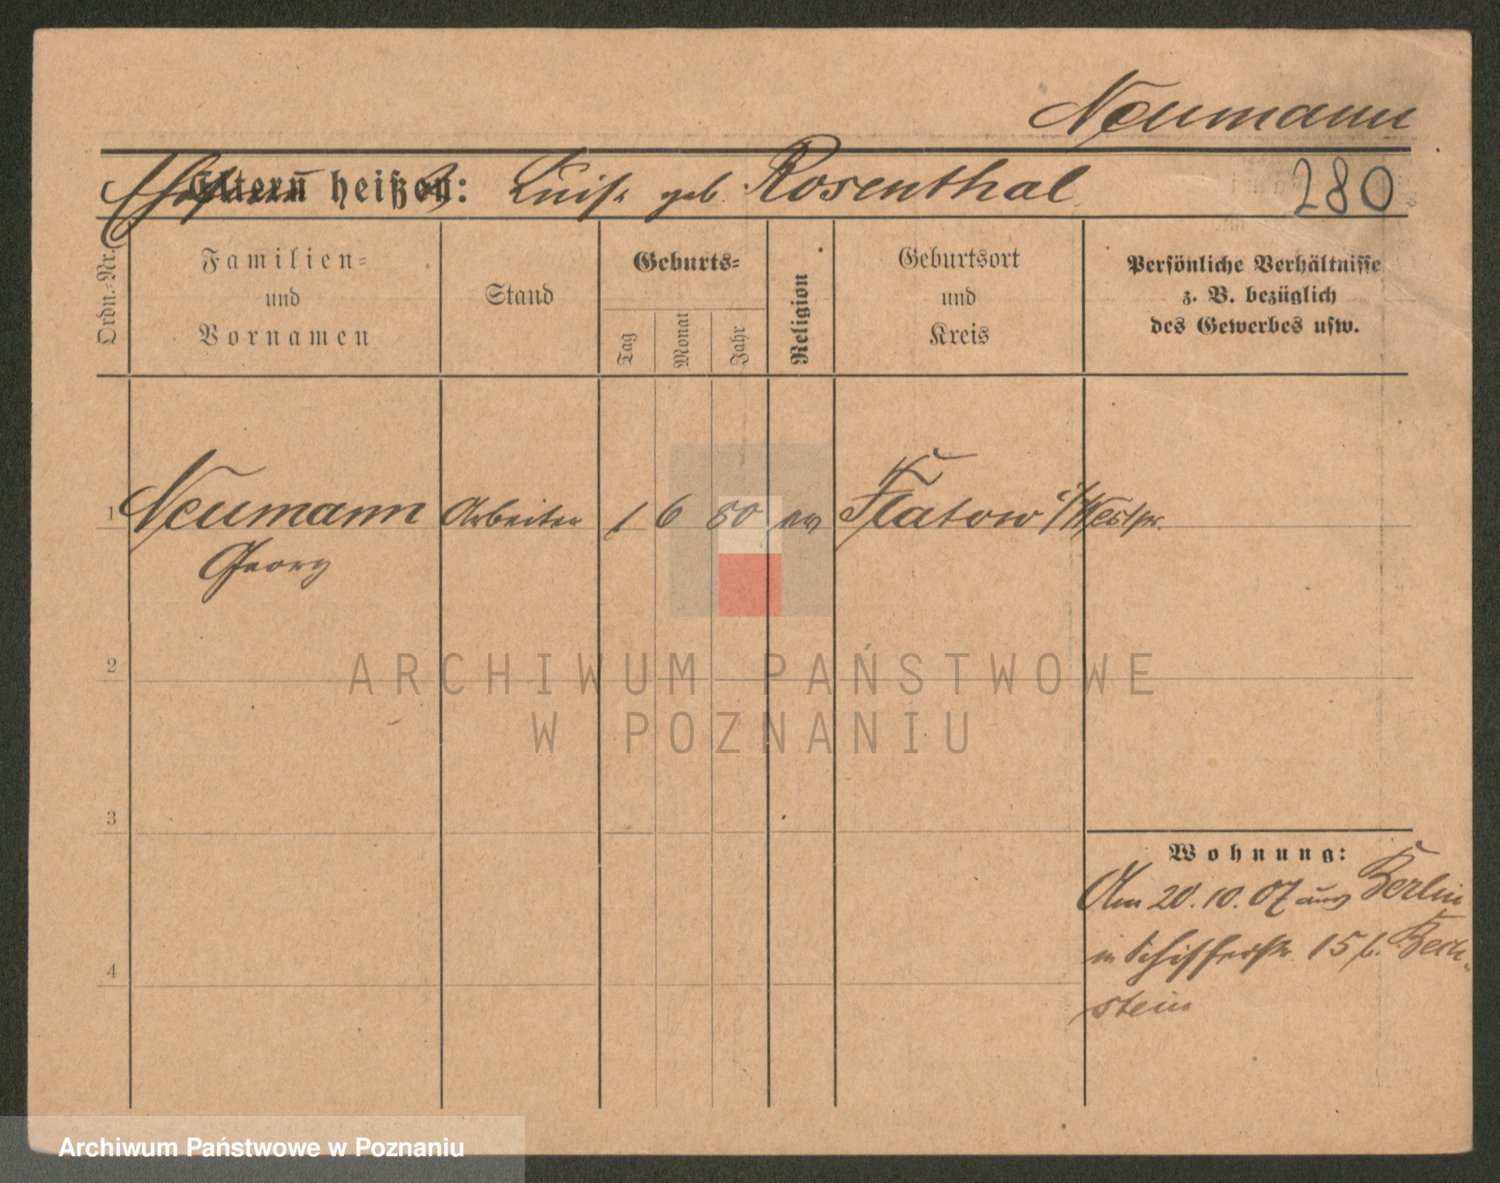 Neumann
Eltern heißen: Luise geb. Rosenthal
280
Ordn.-Nr.
Familien-
und
Vornamen
Stand
Geburts-
Tag
Monat
Jahr
Religion
Geburtsort
und
Kreis
Persönliche Verhältnisse
z. B. bezüglich
des Gewerbes usw.
1 Neumann Arbeiter 1 6 80 ev Flatow i/Westpr.
Georg
2
ARCHIWUM PAŃSTWOWE
W POZNANIU
3
Wohnung:
Am 20.10.07 aus Berlin
in Schifferstr. 15 b. Bech-
stein
4
Archiwum Państwowe w Poznaniu